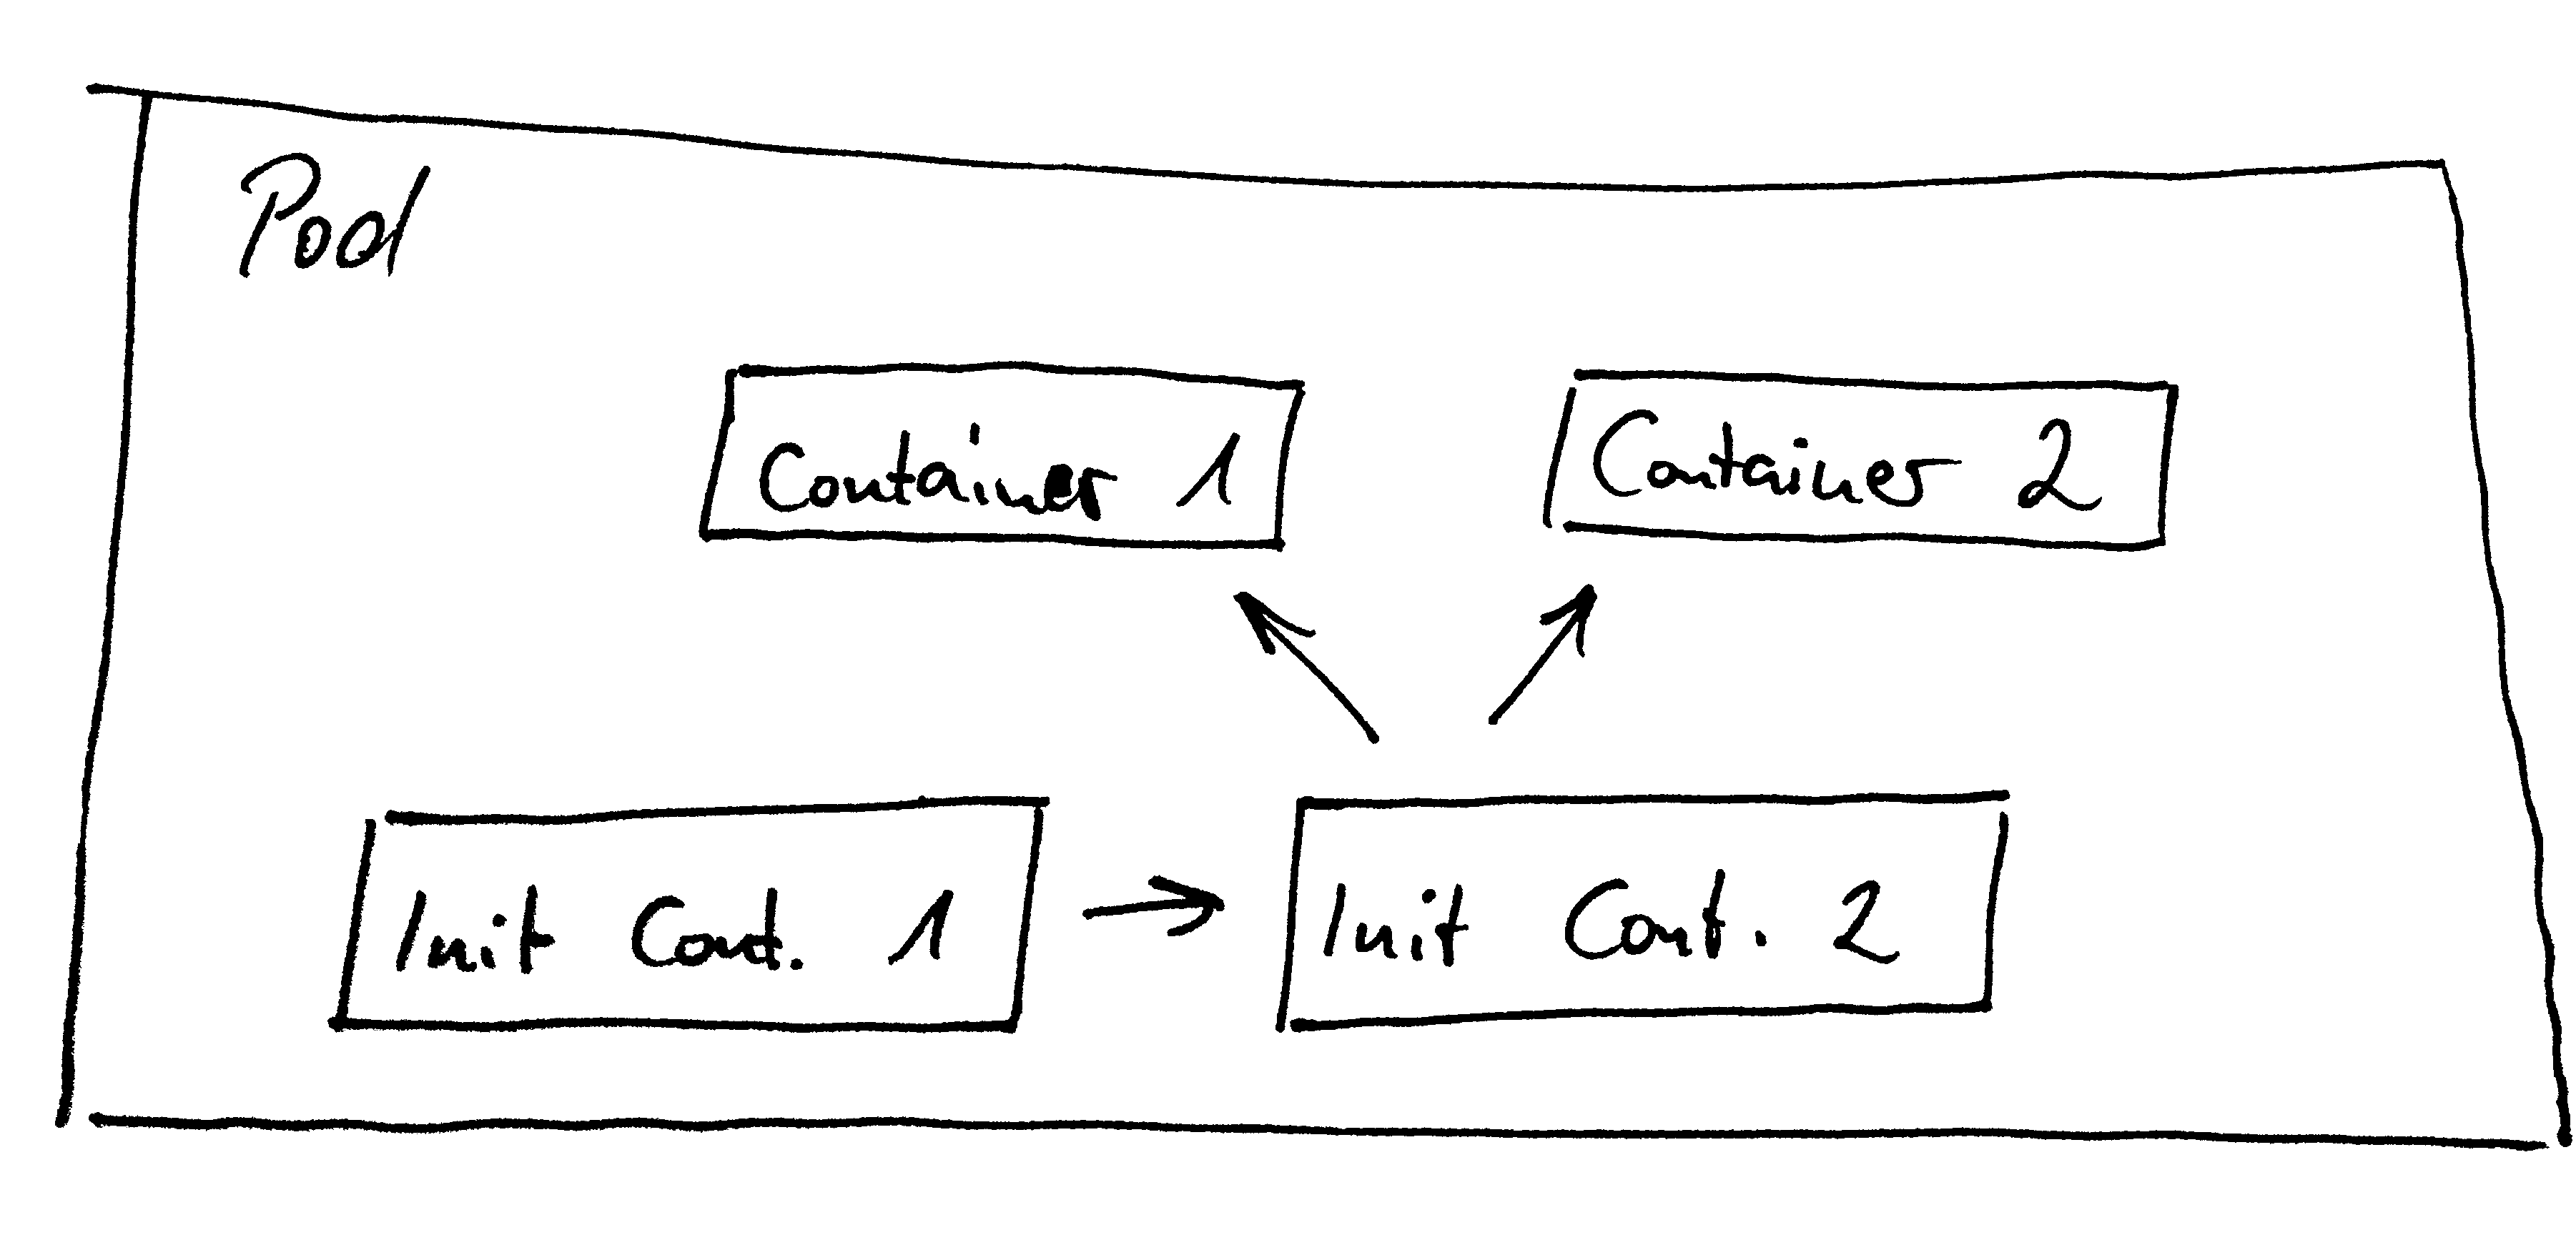 Pod
Container 1
Container 2
Init Cont. 1
Init Cont. 2